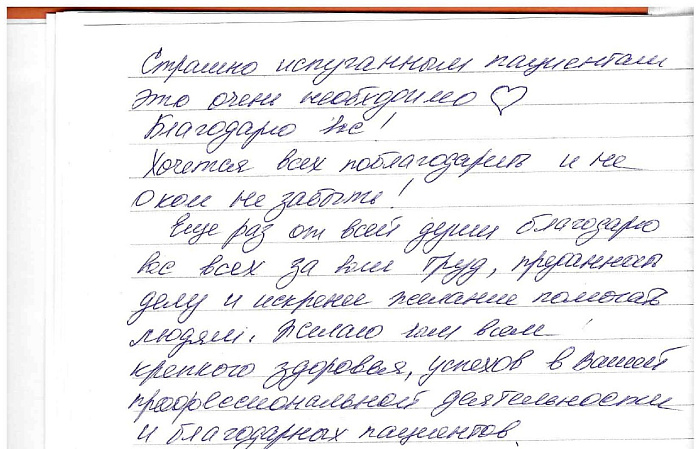 Страшно испуганным пациентам
это очень необходимо ♡
Благодарю вас!
Хочется всех поблагодарить и не
о ком не забыть!
Еще раз от всей души благодарю
вас всех за ваш труд, преданность
делу и искренее желание помогать
людям. Желаю вам всем
крепкого здоровья, успехов в Вашей
профессиональной деятельности
и благодарных пациентов.